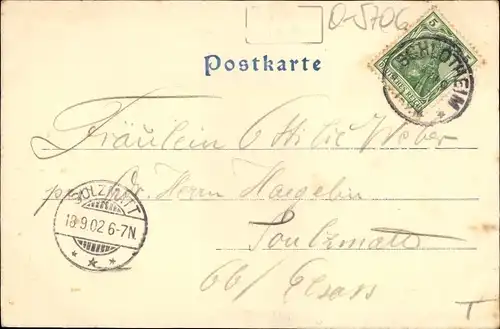 0-5706
5
Postkarte
SCHLOTHEIM
Fräulein Ottilie Weber
pr. Adr. Herrn Haegelin
SULZMATT
18.9.02 6-7N.
Soulzmatt
Elsass
T